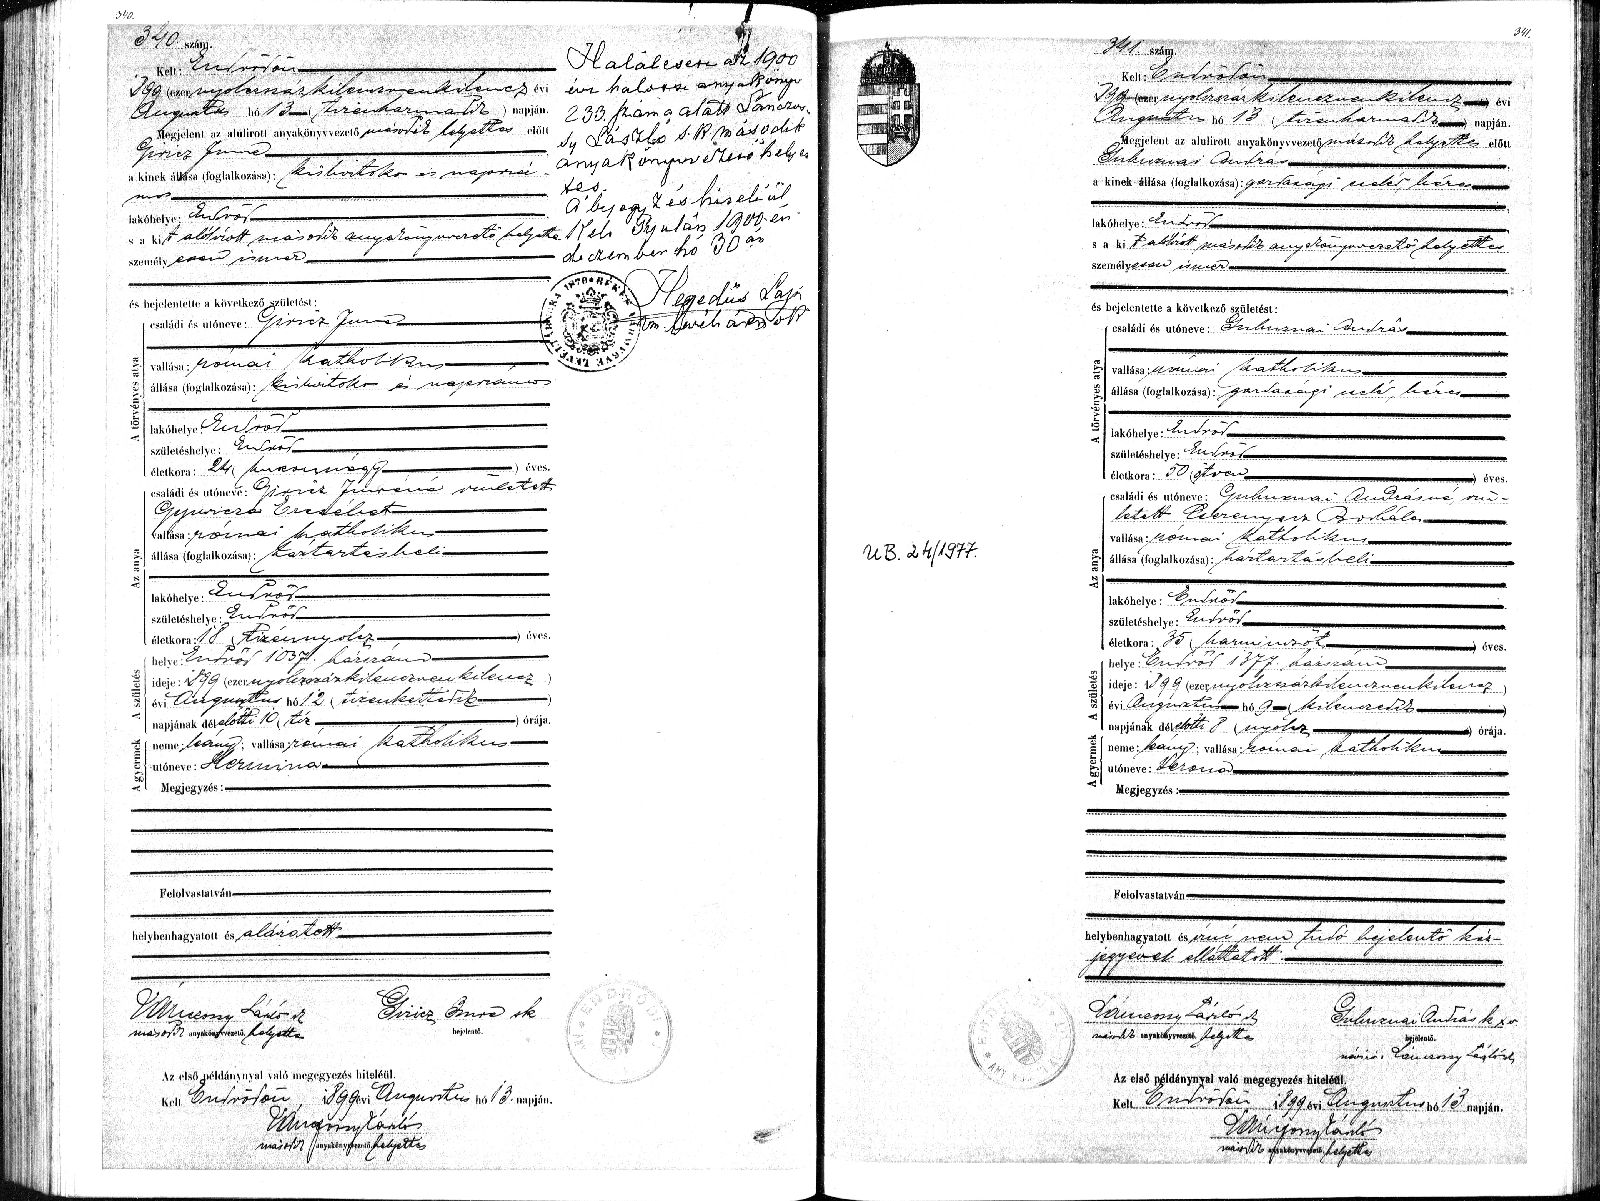 340.
340. szám.
Kelt: Endrődön
899 (ezernyolczszázkilenczvenkilencz) évi
Augustus hó 13 (tizenharmadik) napján.
Megjelent az alulirott anyakönyvvezető második helyettes előtt
Giricz Imre
a kinek állása (foglalkozása): kisbirtokos és napszá-
mos
lakóhelye: Endrőd
s a kit alólírott második anyakönyvvezető helyettes
személyesen ismer
és bejelentette a következő születést:
A törvényes atya
családi és utóneve: Giricz Imre
vallása: római katholikus
állása (foglalkozása): kisbirtokos és napszámos
lakóhelye: Endrőd
születéshelye: Endrőd
életkora: 24 (huszonnégy) éves.
Az anya
családi és utóneve: Giricz Imréné született
Gyuricza Erzsébet
vallása: római katholikus
állása (foglalkozása): háztartásbeli
lakóhelye: Endrőd
születéshelye: Endrőd
életkora: 18 (tizennyolcz) éves.
A születés
helye: Endrőd 1037. házszám
ideje: 899 (ezernyolczszázkilenczvenkilencz)
évi Augusztus hó 12 (tizenkettedik)
napjának délelőtti 10 (tíz) órája.
A gyermek
neme: leány; vallása: római katholikus
utóneve: Hermina
Megjegyzés:
Felolvastatván
helybenhagyatott és aláíratott
Vánczosy László sk Giricz Imre sk
második anyakönyvvezető helyettes bejelentő.
Az első példánynyal való megegyezés hiteléül.
Kelt Endrődön, 1899 évi Augustus hó 13. napján.
Vánczosy László
második anyakönyvvezető helyettes
Halálesete az 1900
évi halotti anyakönyv
233 szám alatt
László s.k. második
anyakönyvvezető helyet
tes.
A bejegyzés hiteléül
Kelt Gyulán 1900 évi
deczember hó 30 án
Hegedüs Lajos
341.
341. szám.
Kelt: Endrődön
899 (ezernyolczszázkilenczvenkilencz) évi
Augustus hó 13 (tizenharmadik) napján.
Megjelent az alulirott anyakönyvvezető második helyettes előtt
Gubucznai András
a kinek állása (foglalkozása): gazdasági cseléd, béres
lakóhelye: Endrőd
s a kit alólírott második anyakönyvvezető helyettes
személyesen ismer
és bejelentette a következő születést:
A törvényes atya
családi és utóneve: Gubucznai András
vallása: római katholikus
állása (foglalkozása): gazdasági cseléd, béres
lakóhelye: Endrőd
születéshelye: Endrőd
életkora: 50 (ötven) éves.
Az anya
családi és utóneve: Gubucznai Andrásné, szü-
letett Cserenyecz Borbála
vallása: római katholikus
állása (foglalkozása): háztartásbeli
lakóhelye: Endrőd
születéshelye: Endrőd
életkora: 35 (harminczöt) éves.
A születés
helye: Endrőd 1377 házszám
ideje: 1899 (ezernyolczszázkilenczvenkilencz)
évi Augusztus hó 9 (kilenczedik)
napjának délelőtti 8 (nyolcz) órája.
A gyermek
neme: leány; vallása: római katholikus
utóneve: Verona
Megjegyzés:
Felolvastatván
helybenhagyatott és írni nem tudó bejelentő kéz-
jegyével elláttatott.
Vánczosy László sk Gubucznai András k x v
második anyakönyvvezető helyettes bejelentő.
névíró: Vánczosy László sk
Az első példánynyal való megegyezés hiteléül.
Kelt Endrődön 1899 évi Augustus hó 13 napján.
Vánczosy László
második anyakönyvvezető helyettes
UB. 24/1977.